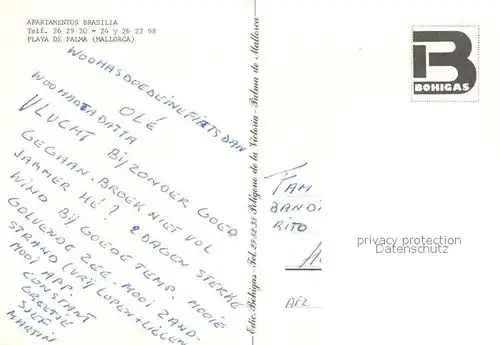 APARTAMENTOS BRASILIA
Telf. 26 29 20 - 24 y 26 22 98
PLAYA DE PALMA (MALLORCA)
OLÉ
VLUCHT BYZONDER GOED
GEGAAN. BROEK NIET VOL
JAMMER HÉ? 2 DAGEN STERKE
WIND BIJ GOEDE TEMP. MOOIE
GOLVENDE ZEE. MOOI ZAND-
STRAND (VRIJ LOPEN + LIGGEN
MOOI APP.
CONSTANT
GREETJE
SJEF
MARTIN
Edic. Bohigas - Tel. 29 82 38 Polígono de la Victoria - Palma de Mallorca
B
BOHIGAS
FAM
BANDI
RITO
privacy protection
Datenschutz